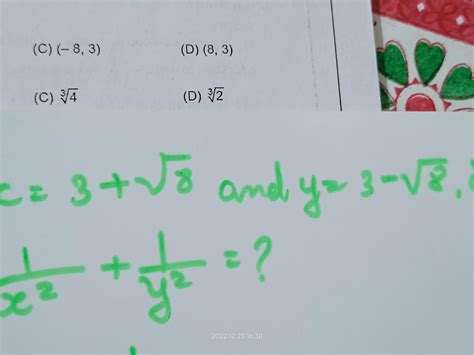 (C) (– 8, 3) (D) (8, 3)
(C) ∛4 (D) ∛2
x = 3 + √8 and y = 3 - √8,
1/x² + 1/y² = ?
2022.12.23 16:38